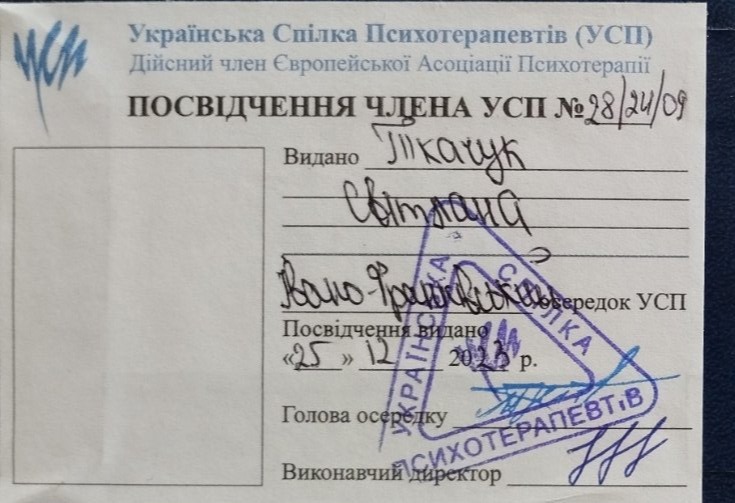 УСП
Українська Спілка Психотерапевтів (УСП)
Дійсний член Європейської Асоціації Психотерапії
ПОСВІДЧЕННЯ ЧЛЕНА УСП №28/24/09
Видано Ткачук
Світлана
Івано-Франківський осередок УСП
Посвідчення видано
«25» 12 2023 р.
Голова осередку
Виконавчий директор
УКРАЇНСЬКА СПІЛКА ПСИХОТЕРАПЕВТІВ